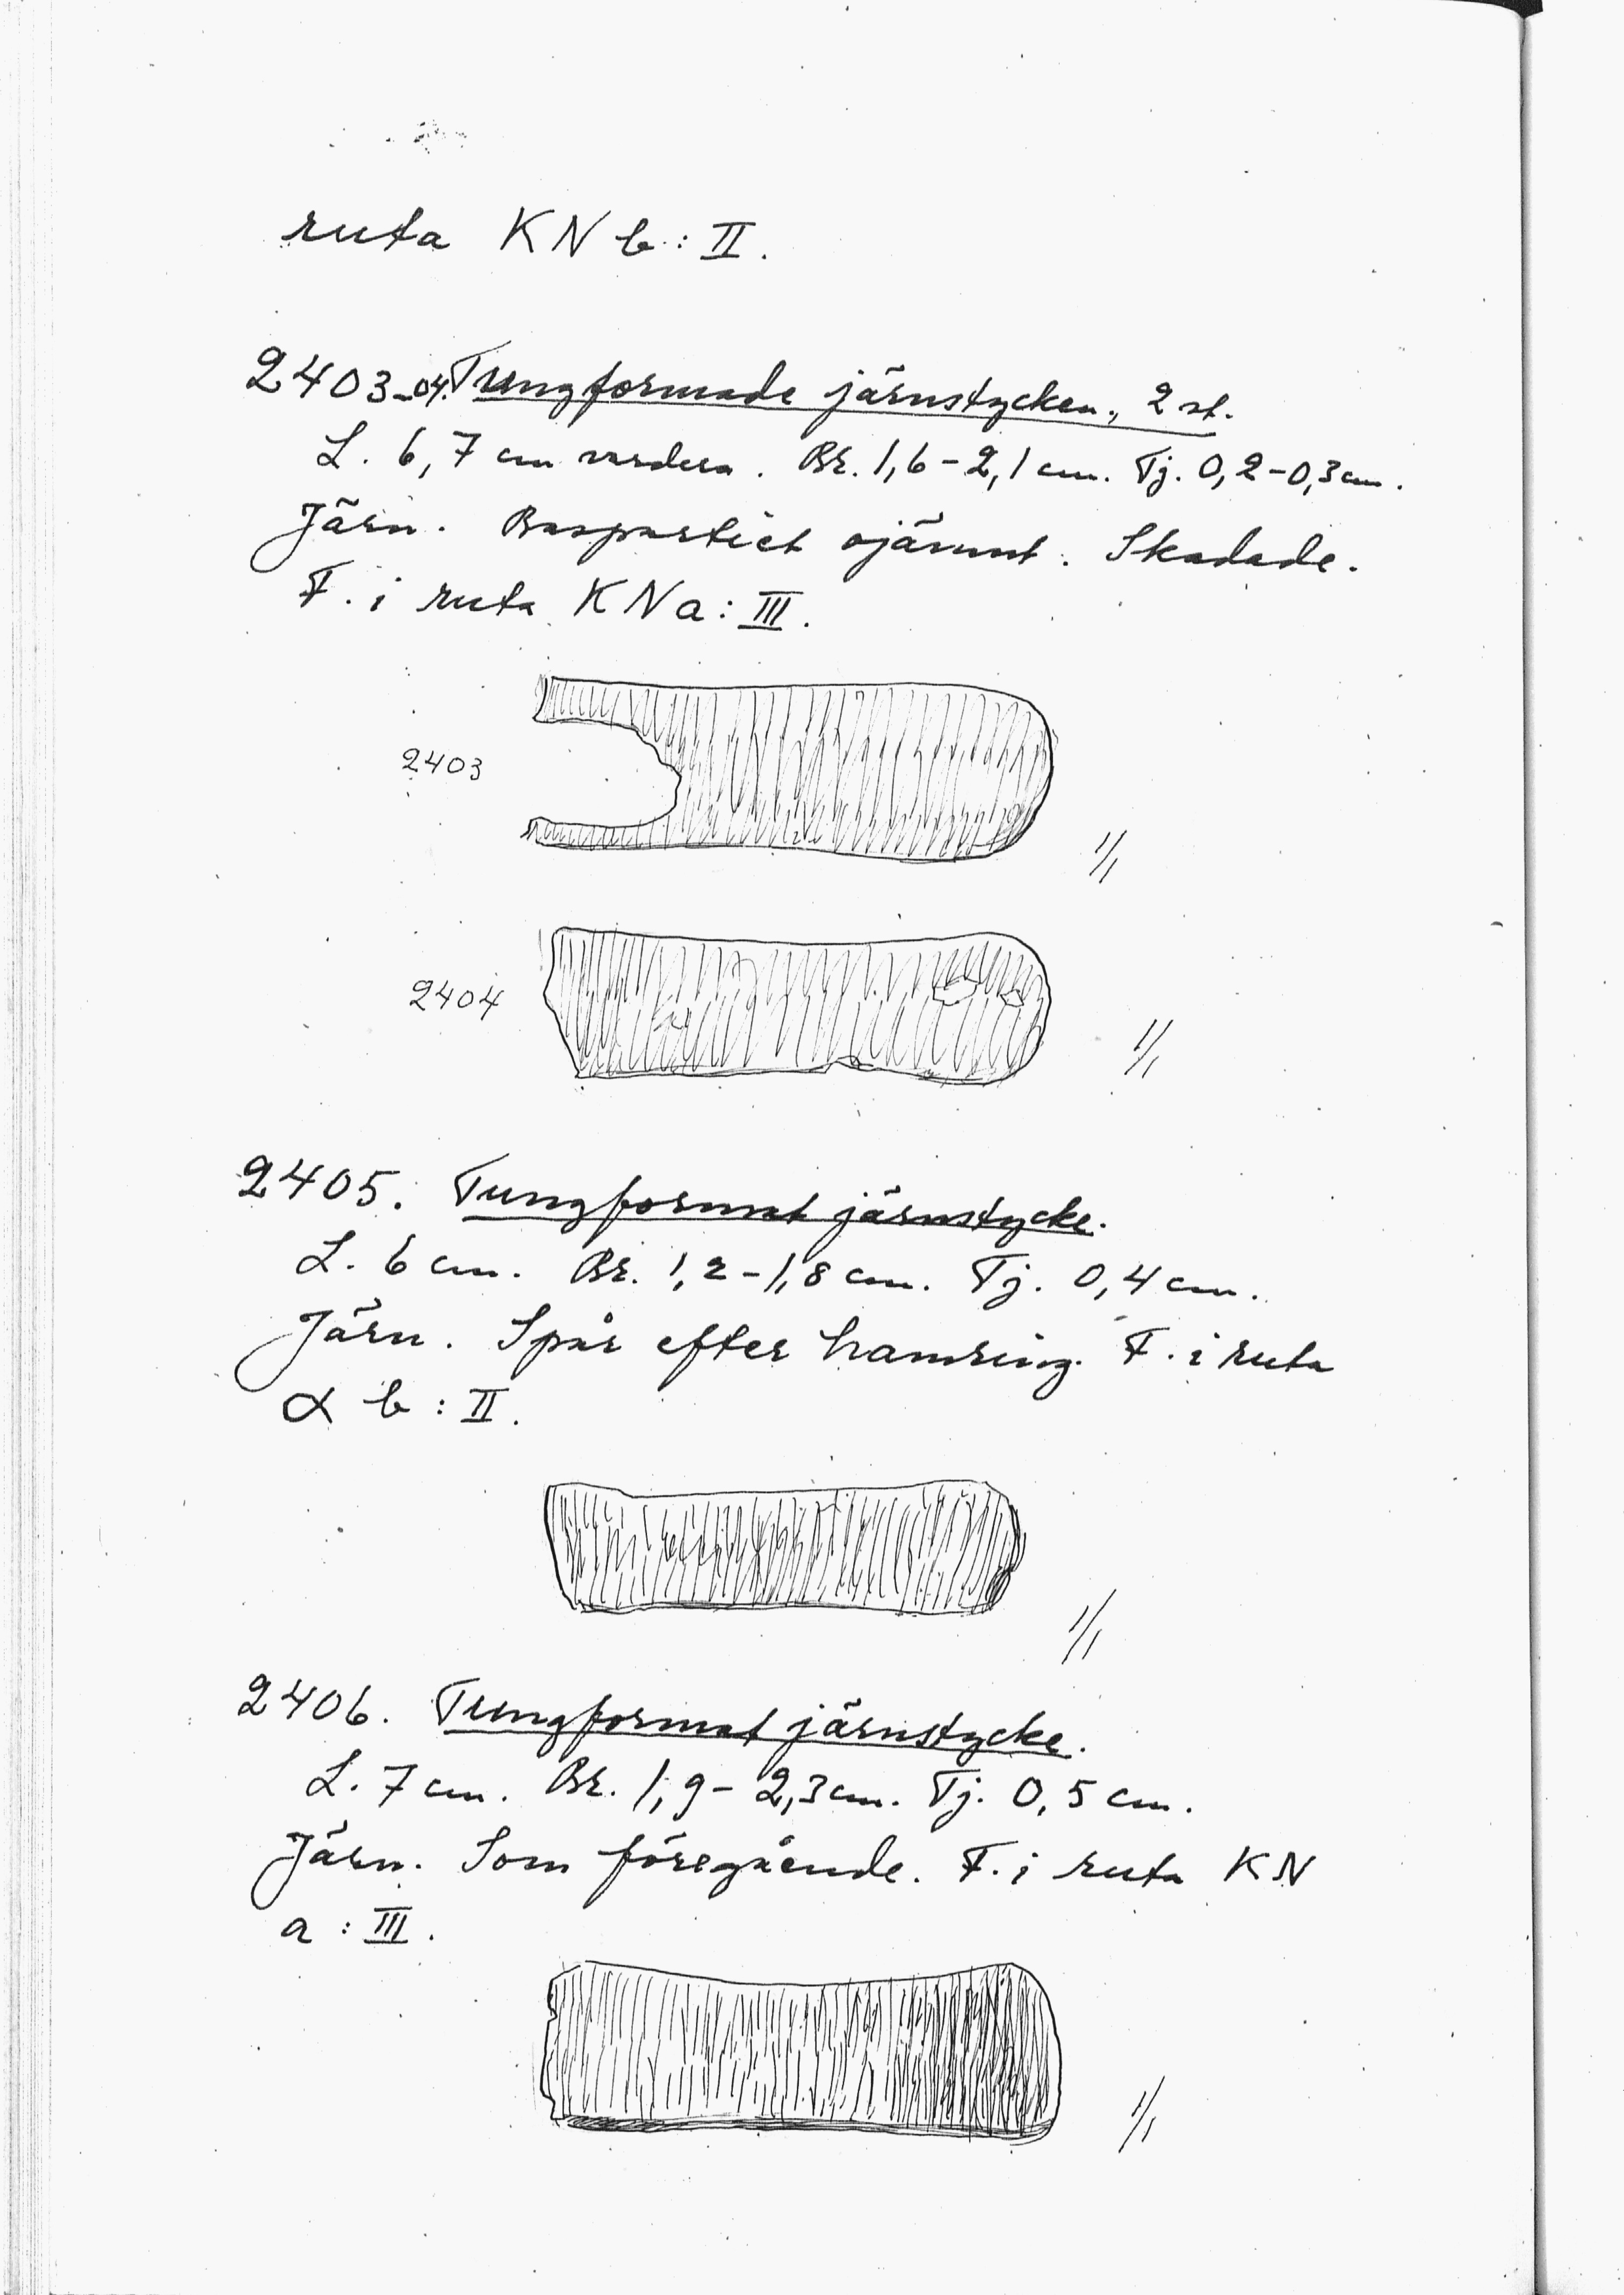 ruta KN b : II.
2403-04. Tungformade järnstycken, 2 st.
L. 6,7 cm vardera. Br. 1,6-2,1 cm. Tj. 0,2-0,3 cm.
Järn. Baspartiet ojämnt. Skadade.
F. i ruta KN a : III.
2403
1/1
2404
1/1
2405. Tungformat järnstycke.
L. 6 cm. Br. 1,2-1,8 cm. Tj. 0,4 cm.
Järn. Spår efter hamring. F. i ruta
α b : II.
1/1
2406. Tungformat järnstycke.
L. 7 cm. Br. 1,9-2,3 cm. Tj. 0,5 cm.
Järn. Som föregående. F. i ruta KN
a : III.
1/1